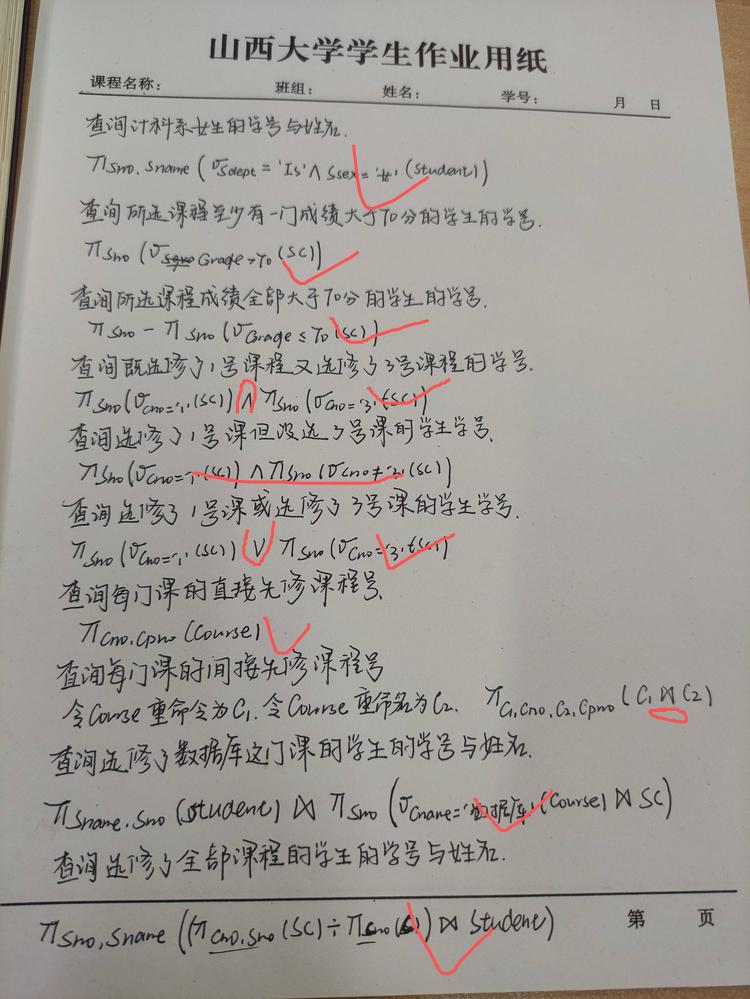 山西大学学生作业用纸
课程名称： 班组： 姓名： 学号： 月 日
查询计科系女生的学号与姓名.
π Sno. Sname (σ Sdept = 'Is' ∧ Ssex = '女' (Student))
查询所选课程至少有一门成绩大于70分的学生的学号.
π Sno (σ Grade > 70 (SC))
查询所选课程成绩全部大于70分的学生的学号.
π Sno - π Sno (σ Grade ≤ 70 (SC))
查询既选修了1号课程又选修了3号课程的学号.
π Sno (σ Cno='1' (SC)) ∧ π Sno (σ Cno='3' (SC))
查询选修了1号课但没选3号课的学生学号.
π Sno (σ Cno='1' (SC)) ∧ π Sno (σ Cno≠'3' (SC))
查询选修了1号课或选修了3号课的学生学号.
π Sno (σ Cno='1' (SC)) ∨ π Sno (σ Cno='3' (SC))
查询每门课的直接先修课程号.
π Cno, Cpno (Course)
查询每门课的间接先修课程号
令Course重命令为C1. 令Course重命名为C2. π C1,Cno, C2,Cpno (C1 ⋈ C2)
查询选修了数据库这门课的学生的学号与姓名.
π Sname. Sno (Student) ⋈ π Sno (σ Cname='数据库' (Course) ⋈ SC)
查询选修了全部课程的学生的学号与姓名.
π Sno, Sname ((π Cno, Sno (SC) ÷ π Cno ( )) ⋈ Student)
第 页